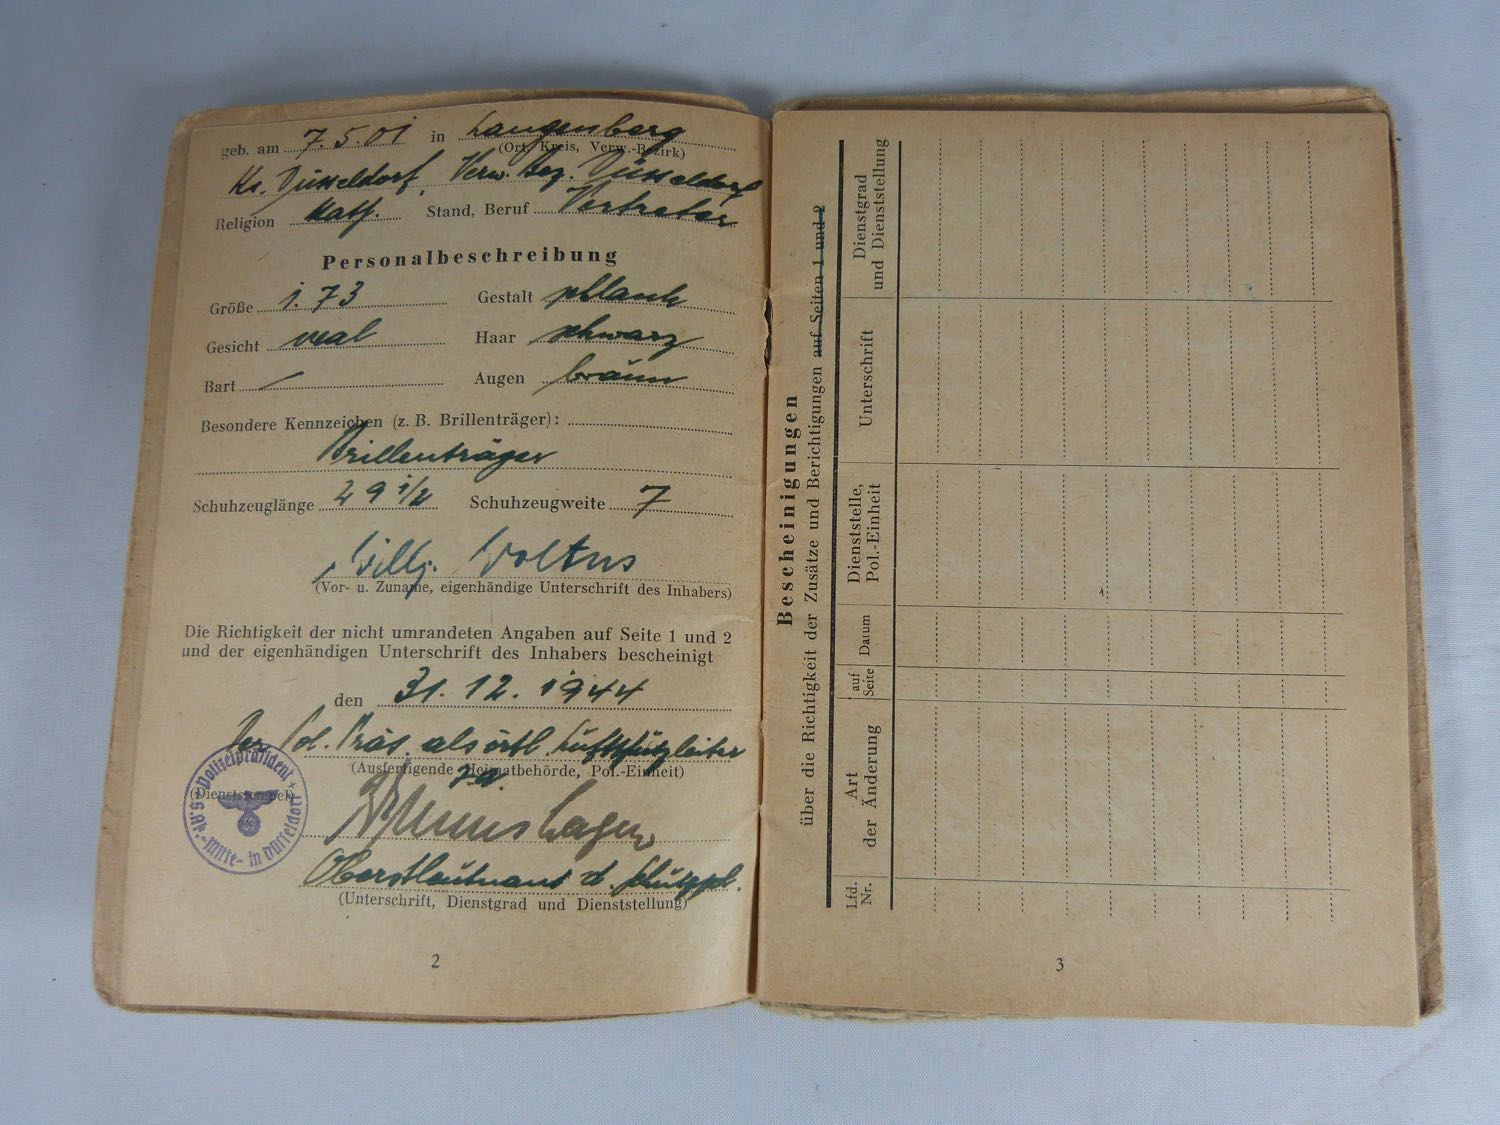 geb. am 7.5.01 in Langenberg
(Ort, Kreis, Verw.-Bezirk)
Kr. Düsseldorf, Verw. Bez. Düsseldorf
Religion kath. Stand, Beruf Vertreter
Personalbeschreibung
Größe 1.73 Gestalt schlank
Gesicht oval Haar schwarz
Bart — Augen braun
Besondere Kennzeichen (z. B. Brillenträger):
Brillenträger
Schuhzeuglänge 29 1/2 Schuhzeugweite 7
Willy
(Vor- u. Zuname, eigenhändige Unterschrift des Inhabers)
Die Richtigkeit der nicht umrandeten Angaben auf Seite 1 und 2
und der eigenhändigen Unterschrift des Inhabers bescheinigt
den 31.12.1944
Der Pol. Präs. als örtl. Luftschutzleiter
(Ausfertigende Heimatbehörde, Pol.-Einheit)
(Dienststempel)
Polizeipräsident
-Mitte- in Düsseldorf
Oberstleutnant d. Schutzpol.
(Unterschrift, Dienstgrad und Dienststellung)
2
Bescheinigungen
über die Richtigkeit der Zusätze und Berichtigungen auf Seiten 1 und 2
Lfd. Nr.
Art der Änderung
auf Seite
Datum
Dienststelle, Pol.-Einheit
Unterschrift
Dienstgrad und Dienststellung
3